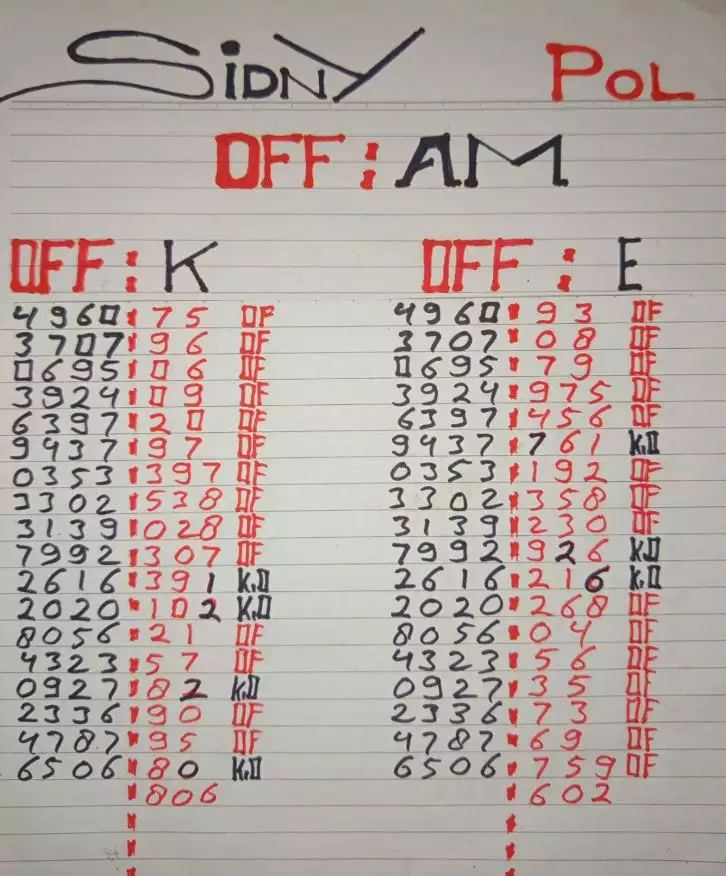 SIDNY POL
OFF : AM
OFF : K OFF : E
4960 : 75 OF 4960 : 93 OF
3707 : 96 OF 3707 : 08 OF
0695 : 06 OF 0695 : 79 OF
3924 : 09 OF 3924 : 975 OF
6397 : 20 OF 6397 : 456 OF
9437 : 97 OF 9437 : 761 K.O
0353 : 397 OF 0353 : 192 OF
3302 : 538 OF 3302 : 358 OF
3139 : 028 OF 3139 : 230 OF
7992 : 307 OF 7992 : 926 K.O
2616 : 391 K.O 2616 : 216 K.O
2020 : 102 K.O 2020 : 268 OF
8056 : 21 OF 8056 : 04 OF
4323 : 57 OF 4323 : 56 OF
0927 : 82 K.O 0927 : 35 OF
2336 : 90 OF 2336 : 73 OF
4787 : 95 OF 4787 : 69 OF
6506 : 80 K.O 6506 : 759 OF
: 806 : 602